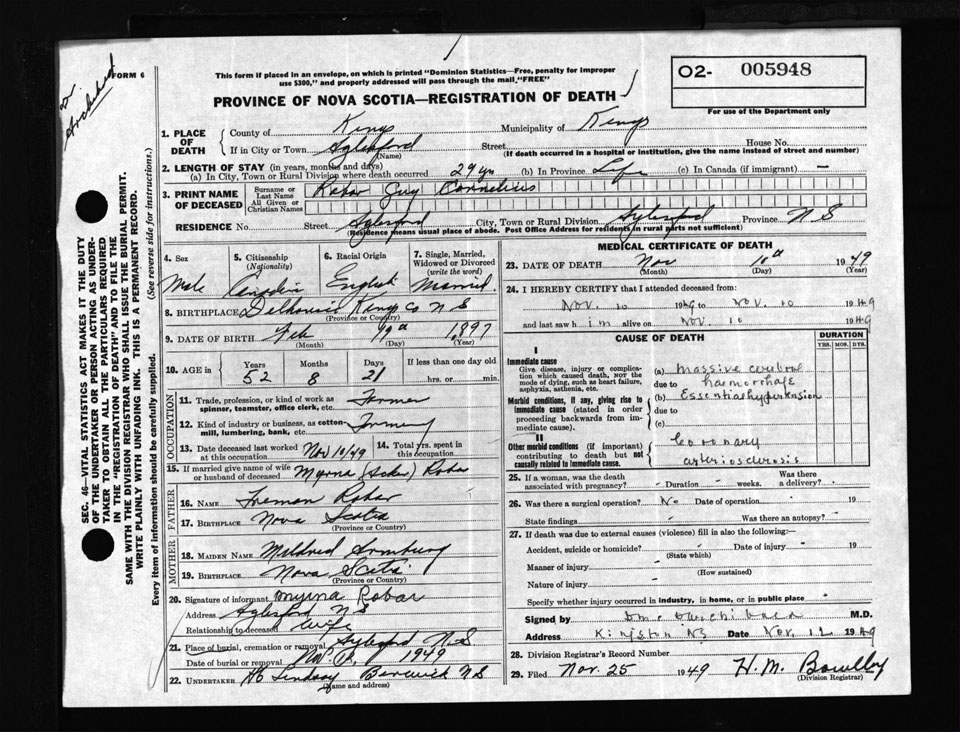 FORM 6
Archibald
This form if placed in an envelope, on which is printed "Dominion Statistics—Free, penalty for improper
use $300," and properly addressed will pass through the mail "FREE"
O2- 005948
For use of the Department only
PROVINCE OF NOVA SCOTIA—REGISTRATION OF DEATH
SEC. 46—VITAL STATISTICS ACT MAKES IT THE DUTY
OF THE UNDERTAKER OR PERSON ACTING AS UNDER-
TAKER TO OBTAIN ALL THE PARTICULARS REQUIRED
IN THE "REGISTRATION OF DEATH" AND TO FILE THE
SAME WITH THE DIVISION REGISTRAR WHO SHALL ISSUE THE BURIAL PERMIT.
WRITE PLAINLY WITH UNFADING INK. THIS IS A PERMANENT RECORD.
Every item of information should be carefully supplied. (See reverse side for instructions.)
1. PLACE OF DEATH
County of Kings Municipality of Kings
If in City or Town Aylesford Street House No.
(Name) (If death occurred in a hospital or institution, give the name instead of street and number)
2. LENGTH OF STAY (in years, months and days)
(a) In City, Town or Rural Division where death occurred 29 yrs (b) In Province Life (c) In Canada (if immigrant) —
3. PRINT NAME OF DECEASED
Surname or Last Name
All Given or Christian Names
Robar Guy Cornelius
RESIDENCE No. Street Aylesford City, Town or Rural Division Aylesford Province N S
(Residence means usual place of abode. Post Office Address for residents in rural parts not sufficient)
4. Sex
Male
5. Citizenship (Nationality)
Canadian
6. Racial Origin
English
7. Single, Married, Widowed or Divorced (write the word)
Married
8. BIRTHPLACE Kings Co N S
(Province or Country)
9. DATE OF BIRTH Feb 19th 1,897
(Month) (Day) (Year)
10. AGE in Years Months Days If less than one day old
52 8 21 hrs. or min.
OCCUPATION
11. Trade, profession, or kind of work as
spinner, teamster, office clerk, etc. Farmer
12. Kind of industry or business, as cotton
mill, lumbering, bank, etc. Farming
13. Date deceased last worked at this occupation Nov 10/49
14. Total yrs. spent in this occupation
15. If married give name of wife
or husband of deceased Myrna (Acker) Robar
FATHER
16. NAME Freman Robar
17. BIRTHPLACE Nova Scotia
(Province or Country)
MOTHER
18. MAIDEN NAME Mildred Armburg
19. BIRTHPLACE Nova Scotia
(Province or Country)
20. Signature of informant Myrna Robar
Address Aylesford N S
Relationship to deceased Wife
21. Place of burial, cremation or removal Aylesford N.S
Date of burial or removal Nov. 12, 1949
22. UNDERTAKER Lindsay Berwick N S
(Name and address)
MEDICAL CERTIFICATE OF DEATH
23. DATE OF DEATH Nov 10th 1949
(Month) (Day) (Year)
24. I HEREBY CERTIFY that I attended deceased from:
Nov. 10 1949 to Nov. 10 1949
and last saw him alive on Nov. 10 1949
CAUSE OF DEATH
DURATION
YRS. MOS. DYS.
I
Immediate cause
Give disease, injury or complica-
tion which caused death, not the
mode of dying, such as heart failure,
asphyxia, asthenia, etc.
(a) Massive cerebral
due to haemorrhage
Morbid conditions, if any, giving rise to
immediate cause (stated in order
proceeding backwards from im-
mediate cause).
(b) Essential hypertension
due to
(c)
II
Other morbid conditions (if important)
contributing to death but not
causally related to immediate cause.
Coronary
arteriosclerosis
25. If a woman, was the death
associated with pregnancy? - Duration - weeks. Was there a delivery? -
26. Was there a surgical operation? No Date of operation - 19
State findings - Was there an autopsy? -
27. If death was due to external causes (violence) fill in also the following:—
Accident, suicide or homicide? - Date of injury - 19
(State which)
Manner of injury -
(How sustained)
Nature of injury -
Specify whether injury occurred in industry, in home, or in public place -
Signed by Archibald M.D.
Address Kingston NS Date Nov. 12 1949
28. Division Registrar's Record Number
29. Filed Nov. 25 1949 H. M.
(Division Registrar)